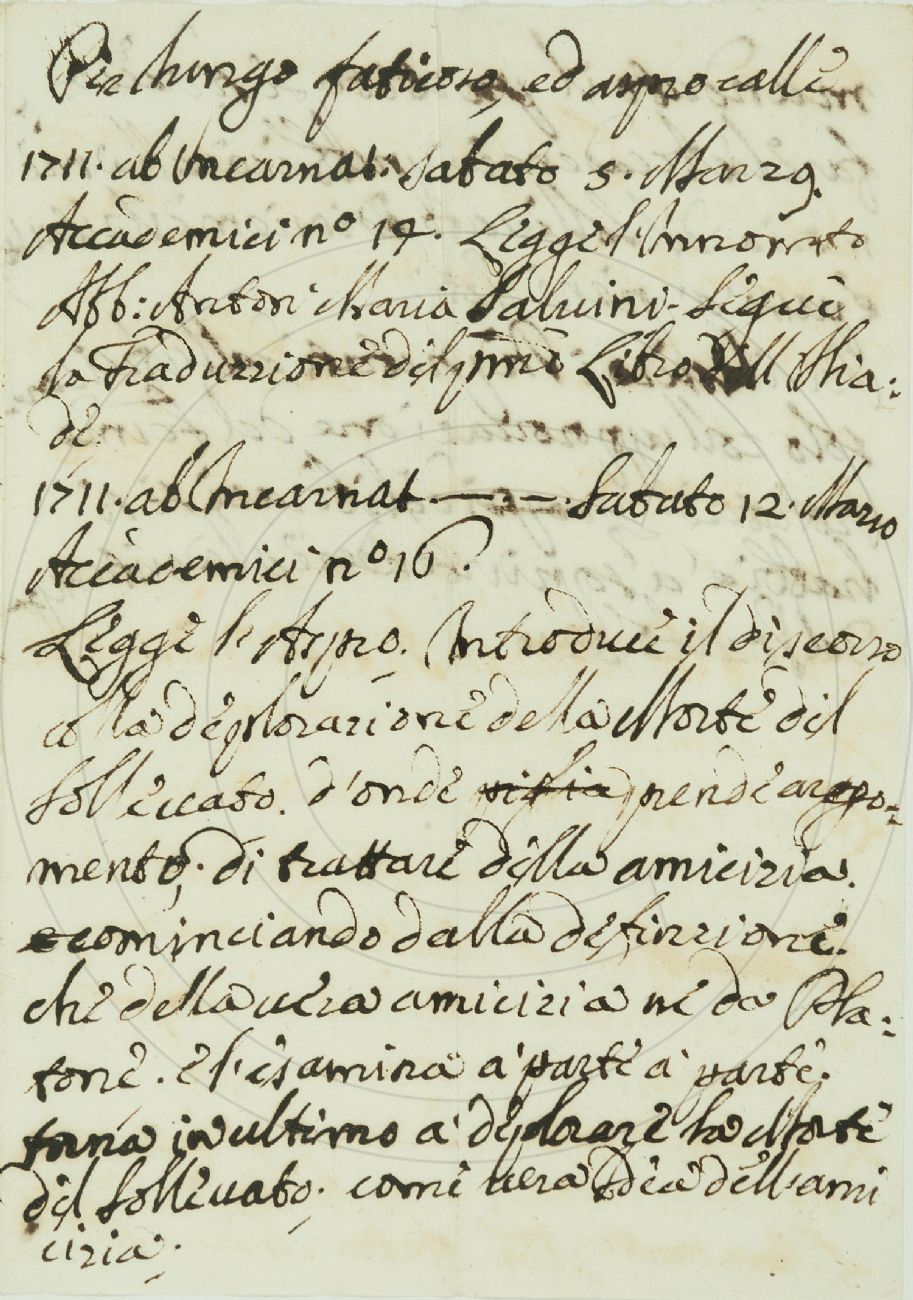 Per lungo faticoso, ed aspro calle
1711. ab Incarnat. Sabato 5. Marzo.
Accademici nº 14. Legge l'Innominato
Abb: Anton Maria Salvini - Segue
la Traduzzione del primo Libro dell Ilia-
de.
1711. ab Incarnat. — . — . Sabato 12. Marzo
Accademici nº 16.
Legge l'Aspro. Introduce il discorso
colla deplorazione della Morte del
Sollevato. d'onde prende argo-
mento, di trattare della amicizia.
e cominciando dalla definizzione.
che della vera amicizia ne da Pla-
tone. e l'esamina a' parte a' parte.
torna in ultimo a' deplorare la Morte
del Sollevato. come vera Idea dell'ami
cizia.